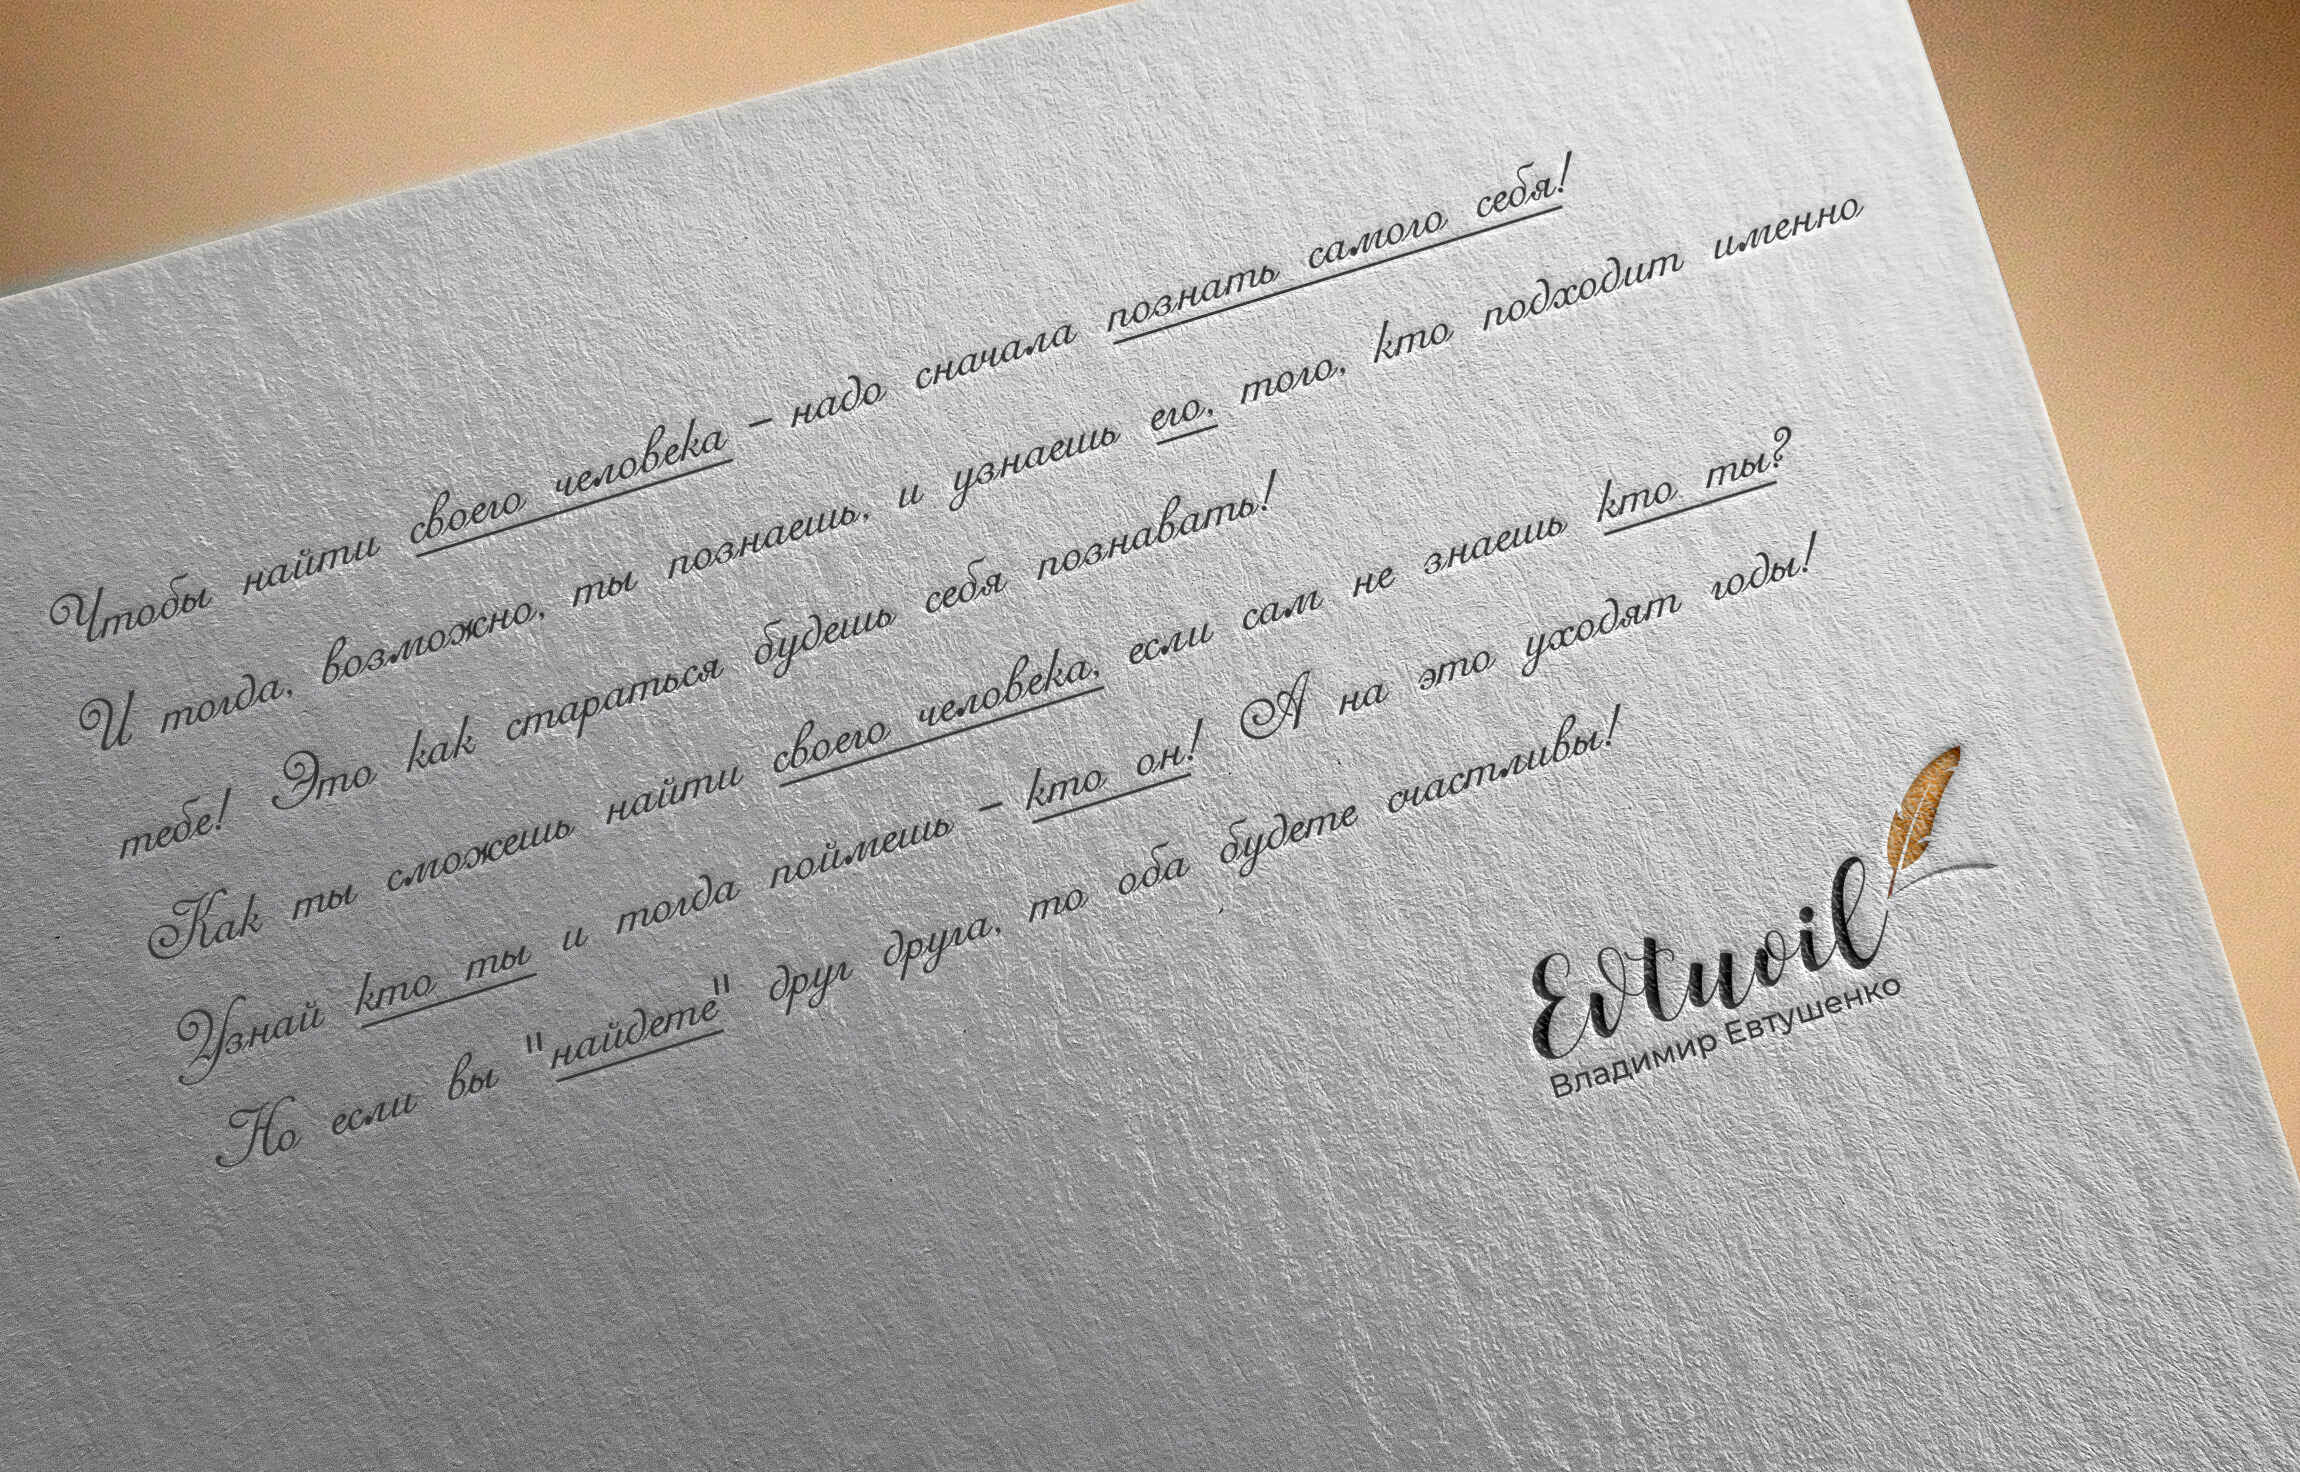 Чтобы найти своего человека - надо сначала познать самого себя!
И тогда, возможно, ты познаешь, и узнаешь его, того, кто подходит именно
тебе! Это как стараться будешь себя познавать!
Как ты сможешь найти своего человека, если сам не знаешь кто ты?
Узнай кто ты и тогда поймешь - кто он! А на это уходят годы!
Но если вы "найдете" друг друга, то оба будете счастливы!
Evtuoil
Владимир Евтушенко